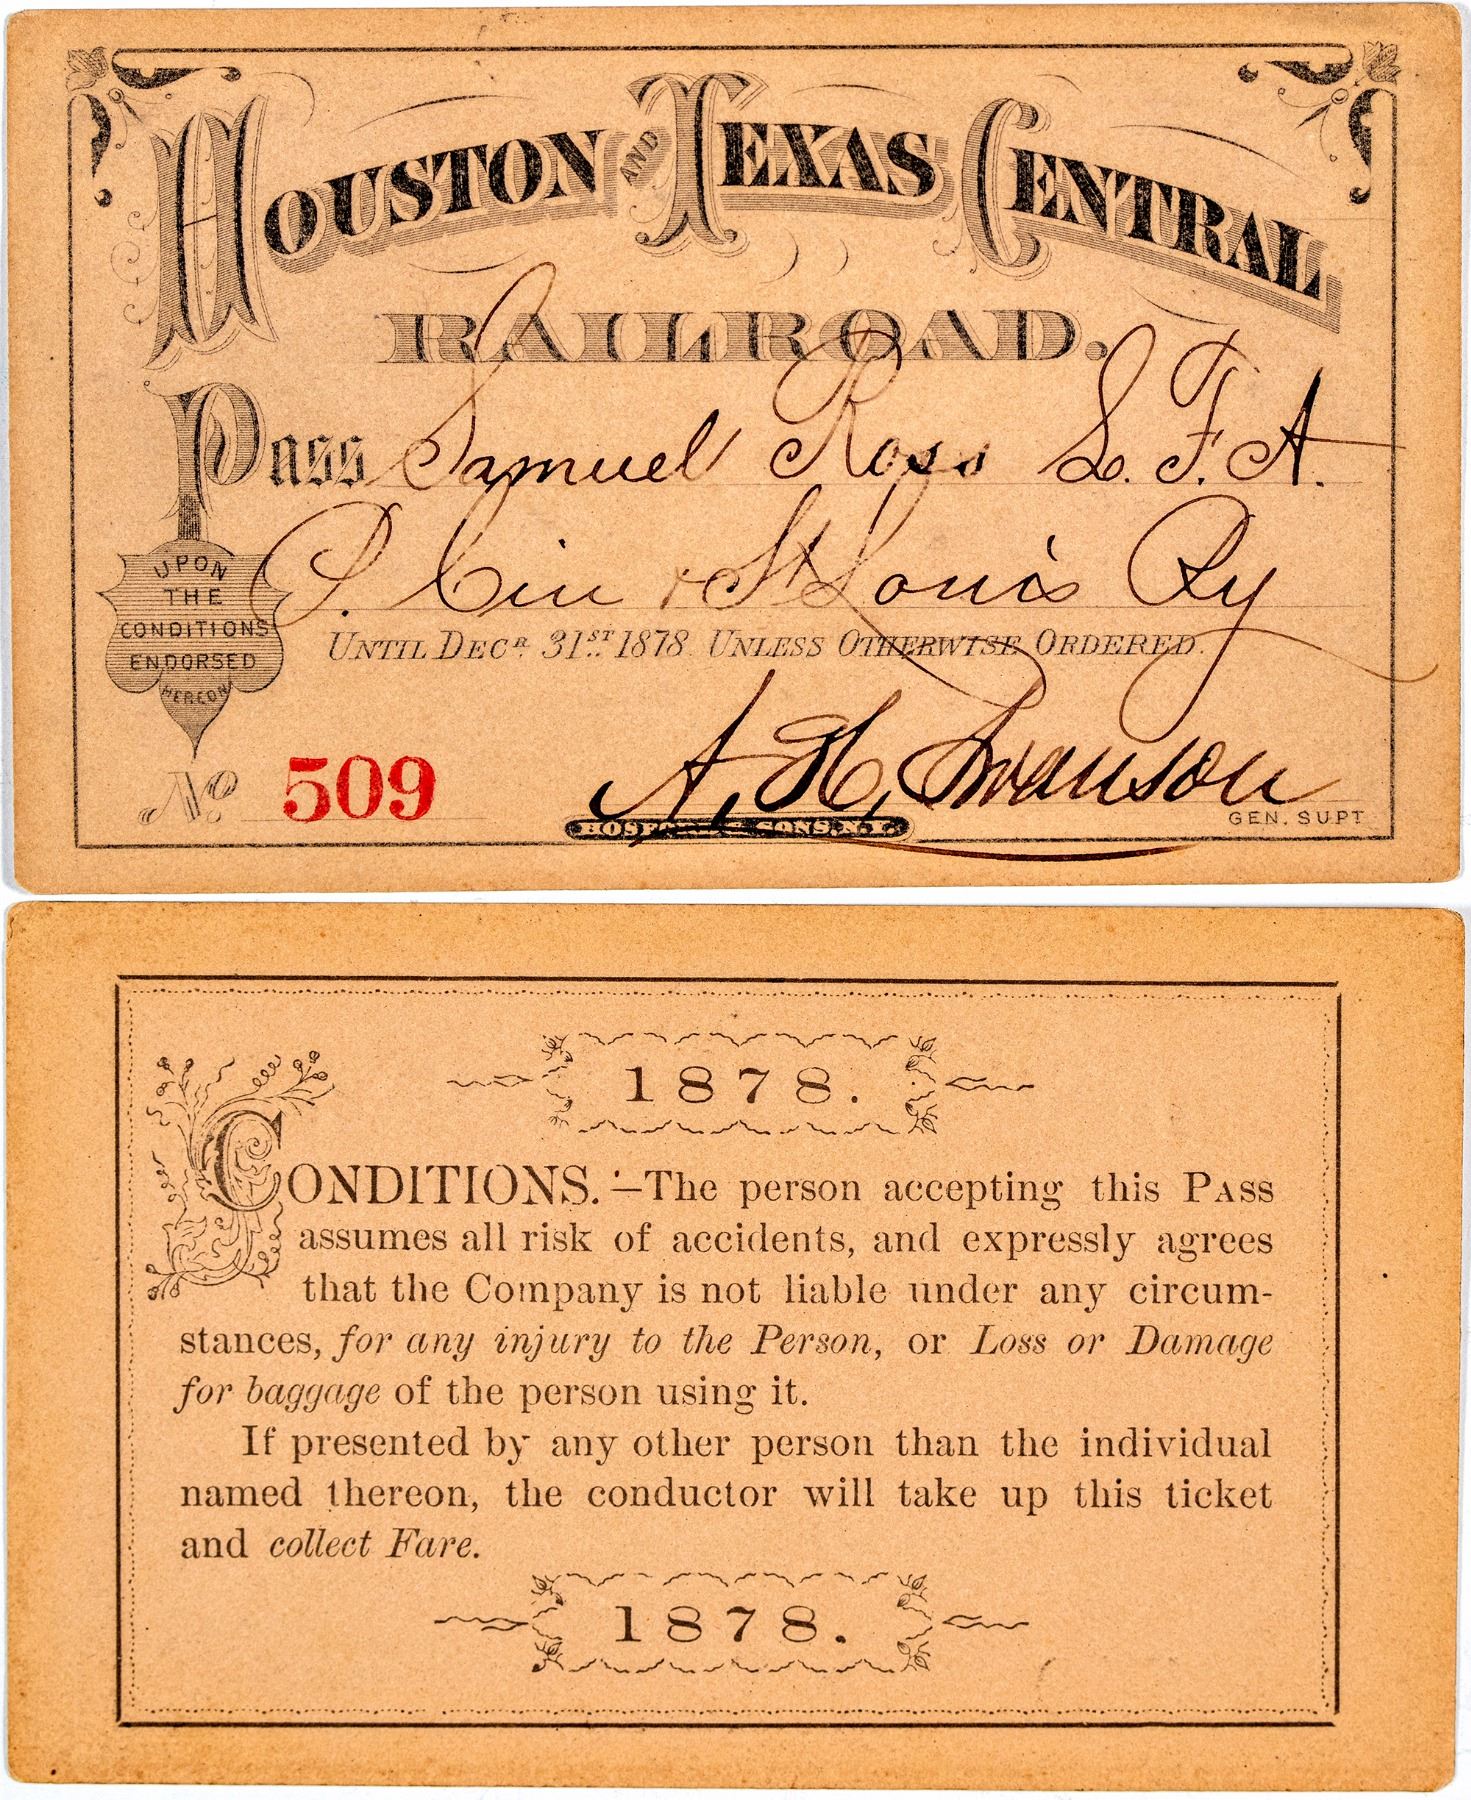 HOUSTON AND TEXAS CENTRAL
RAILROAD.
Pass Samuel Ross G. F. A.
P. Cin & St Louis Ry
UPON
THE
CONDITIONS
ENDORSED
HEREON
UNTIL DECR. 31ST. 1878. UNLESS OTHERWISE ORDERED.
No 509
A. H. Swanson
GEN. SUPT
SONS, N.Y.
1878.
CONDITIONS.—The person accepting this PASS
assumes all risk of accidents, and expressly agrees
that the Company is not liable under any circum-
stances, for any injury to the Person, or Loss or Damage
for baggage of the person using it.
If presented by any other person than the individual
named thereon, the conductor will take up this ticket
and collect Fare.
1878.